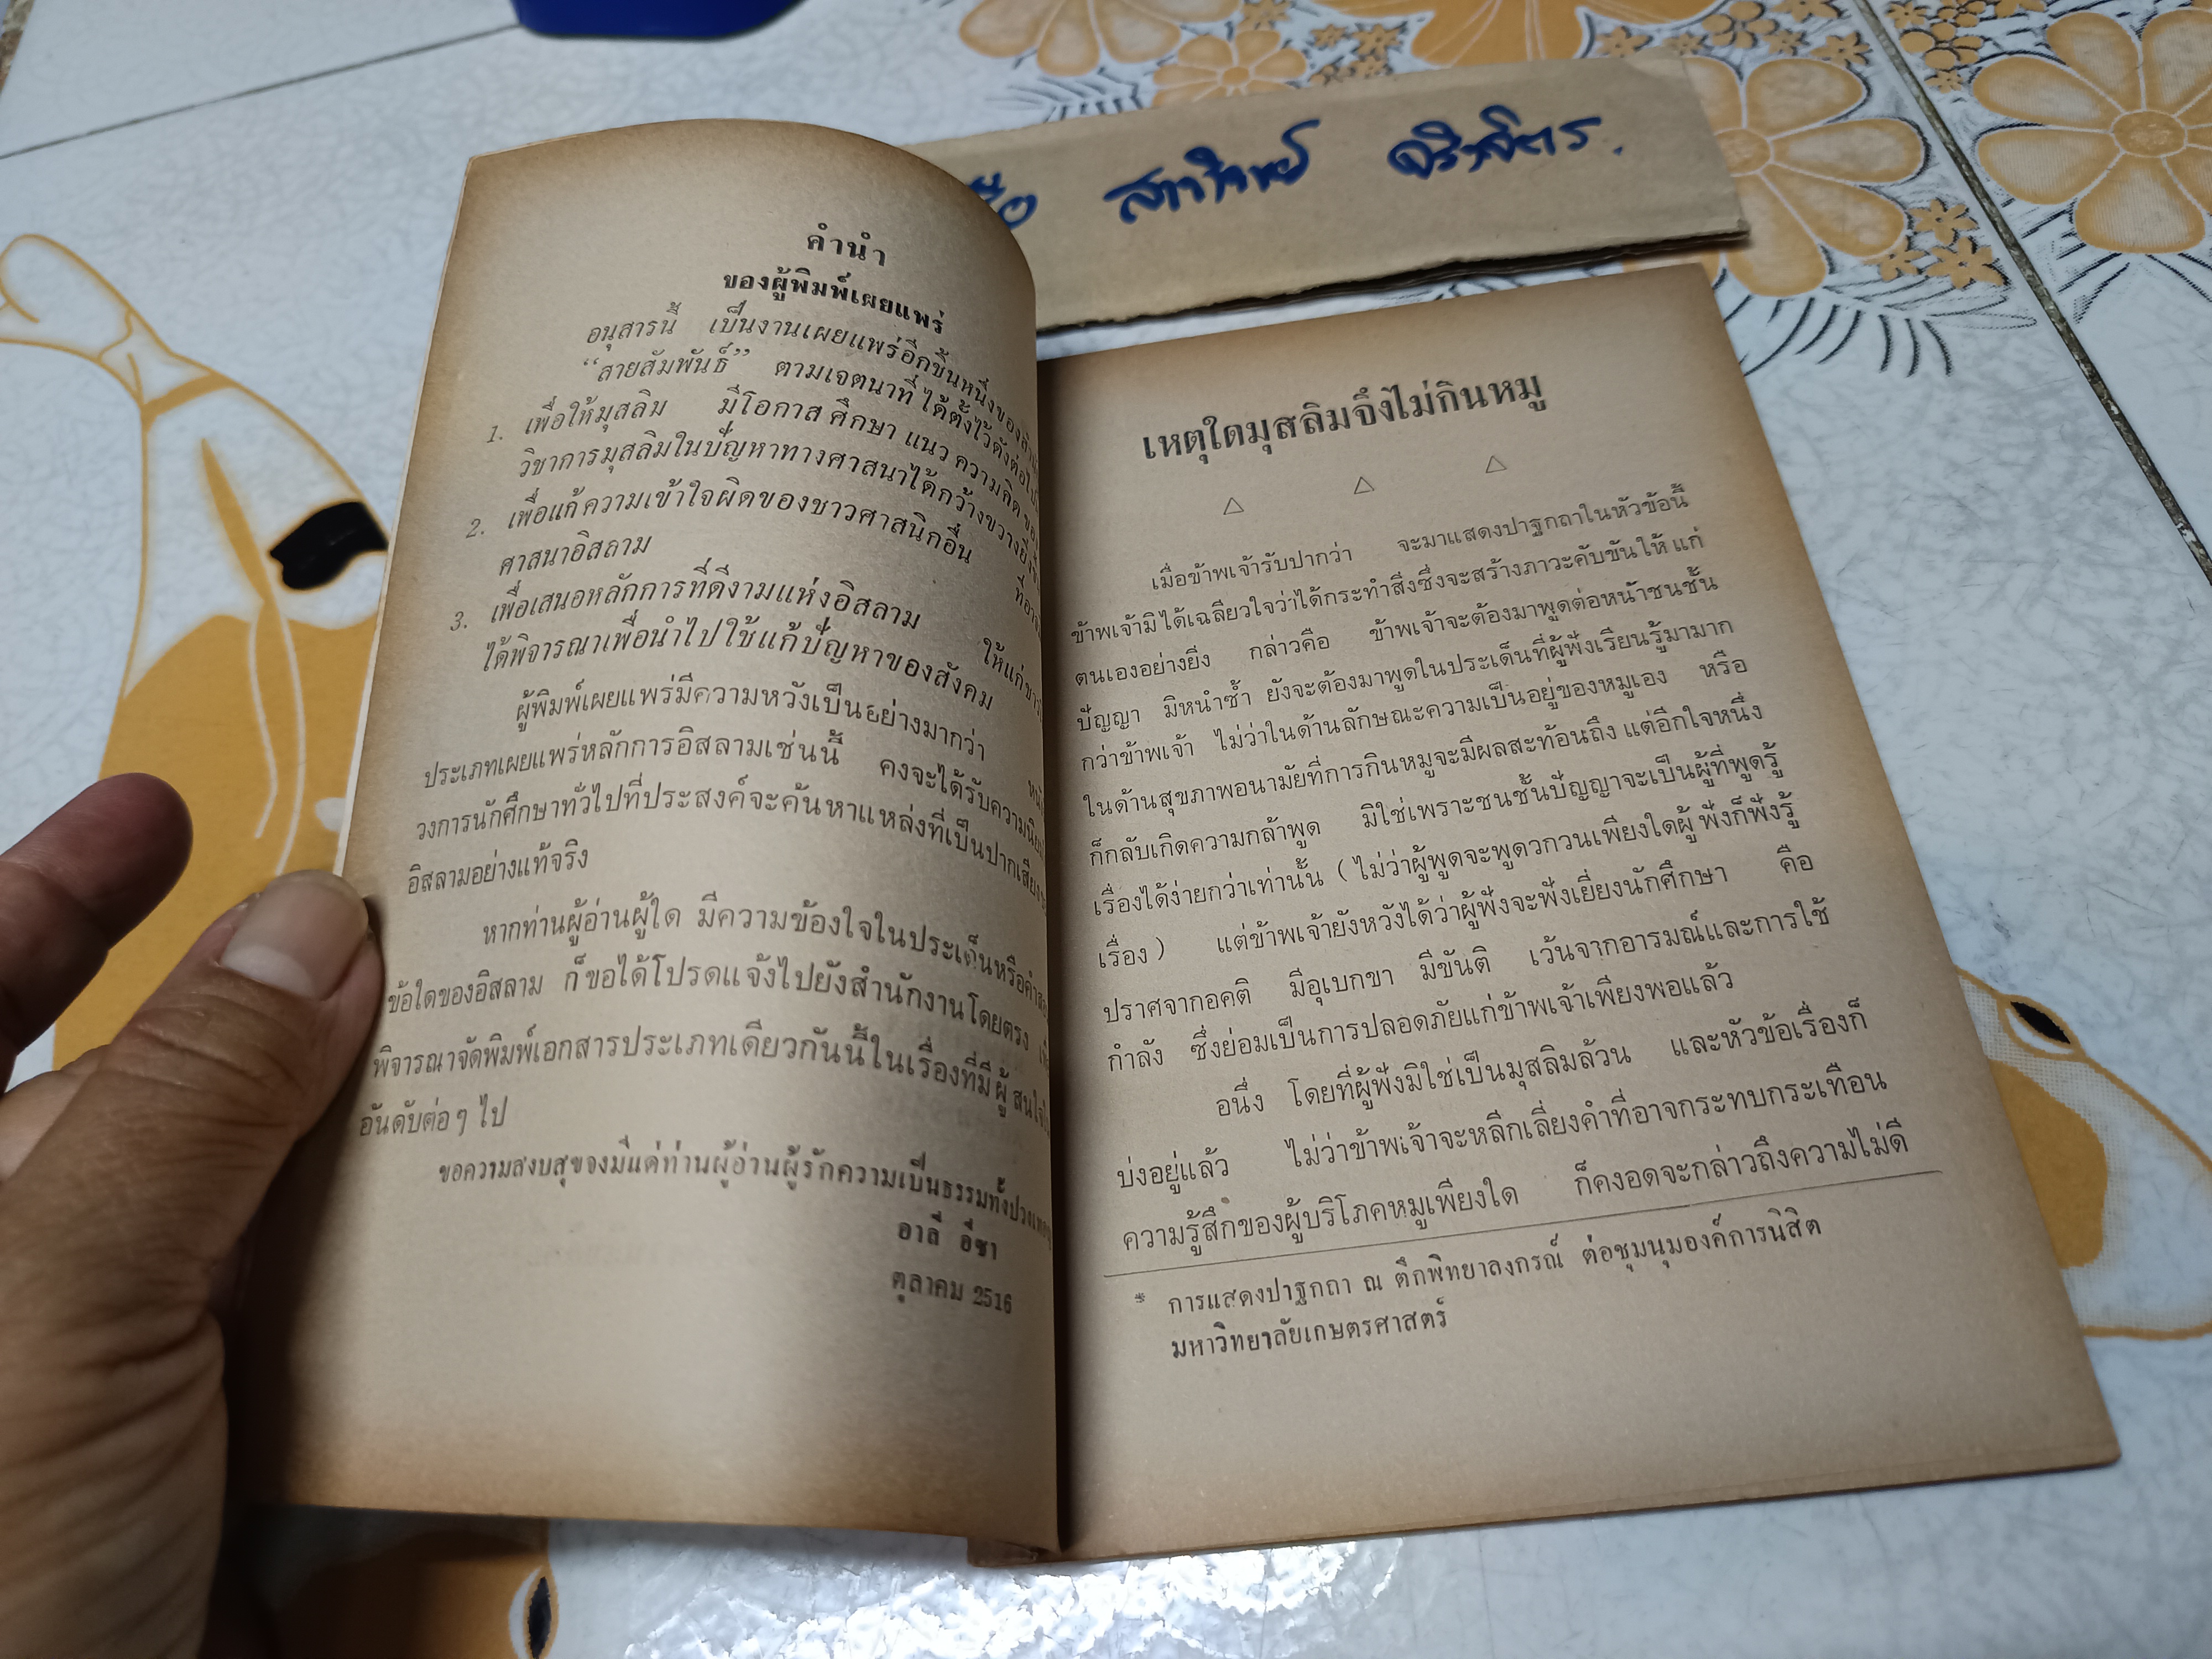 คำนำ
ของผู้พิมพ์เผยแพร่
อนุสารนี้ เป็นงานเผยแพร่อีกชิ้นหนึ่งของ
“สายสัมพันธ์” ตามเจตนาที่ได้ตั้งไว้ดังต่อไป
1. เพื่อให้มุสลิม มีโอกาสศึกษา แนว ความคิด
วิชาการมุสลิมในปัญหาทางศาสนาได้กว้างขวางยิ่ง
2. เพื่อแก้ความเข้าใจผิดของชาวศาสนิกอื่น
ศาสนาอิสลาม
3. เพื่อเสนอหลักการที่ดีงามแห่งอิสลาม ให้แก่
ได้พิจารณาเพื่อนำไปใช้แก้ปัญหาของสังคม
ผู้พิมพ์เผยแพร่มีความหวังเป็นอย่างมากว่า
ประเภทเผยแพร่หลักการอิสลามเช่นนี้ คงจะได้รับความนิยม
วงการนักศึกษาทั่วไปที่ประสงค์จะค้นหาแหล่งที่เป็นปากเสียง
อิสลามอย่างแท้จริง
หากท่านผู้อ่านผู้ใด มีความข้องใจในประเด็นหรือ
ข้อใดของอิสลาม ก็ขอได้โปรดแจ้งไปยังสำนักงานโดยตรง
พิจารณาจัดพิมพ์เอกสารประเภทเดียวกันนี้ในเรื่องที่มีผู้
อันดับต่อๆ ไป
ขอความสงบสุขจงมีแด่ท่านผู้อ่านผู้รักความเป็นธรรมทั้งปวง
อาลี อีซา
ตุลาคม 2516
สาวทิพย์
เหตุใดมุสลิมจึงไม่กินหมู
เมื่อข้าพเจ้ารับปากว่า จะมาแสดงปาฐกถาในหัวข้อนี้
ข้าพเจ้ามิได้เฉลียวใจว่าได้กระทำสิ่งซึ่งจะสร้างภาวะคับขันให้ แก่
ตนเองอย่างยิ่ง กล่าวคือ ข้าพเจ้าจะต้องมาพูดต่อหน้าชนชั้น
ปัญญา มิหนำซ้ำ ยังจะต้องมาพูดในประเด็นที่ผู้ฟังเรียนรู้มามาก
กว่าข้าพเจ้า ไม่ว่าในด้านลักษณะความเป็นอยู่ของหมูเอง หรือ
ในด้านสุขภาพอนามัยที่การกินหมูจะมีผลสะท้อนถึง แต่อีกใจหนึ่ง
ก็กลับเกิดความกล้าพูด มิใช่เพราะชนชั้นปัญญาจะเป็นผู้ที่พูดรู้
เรื่องได้ง่ายกว่าเท่านั้น ( ไม่ว่าผู้พูดจะพูดวกวนเพียงใดผู้ฟังก็ฟังรู้
เรื่อง ) แต่ข้าพเจ้ายังหวังได้ว่าผู้ฟังจะฟังเยี่ยงนักศึกษา คือ
ปราศจากอคติ มีอุเบกขา มีขันติ เว้นจากอารมณ์และการใช้
กำลัง ซึ่งย่อมเป็นการปลอดภัยแก่ข้าพเจ้าเพียงพอแล้ว
อนึ่ง โดยที่ผู้ฟังมิใช่เป็นมุสลิมล้วน และหัวข้อเรื่องก็
บ่งอยู่แล้ว ไม่ว่าข้าพเจ้าจะหลีกเลี่ยงคำที่อาจกระทบกระเทือน
ความรู้สึกของผู้บริโภคหมูเพียงใด ก็คงอดจะกล่าวถึงความไม่ดี
* การแสดงปาฐกถา ณ ตึกพิทยาลงกรณ์ ต่อชุมนุมองค์การนิสิต
มหาวิทยาลัยเกษตรศาสตร์